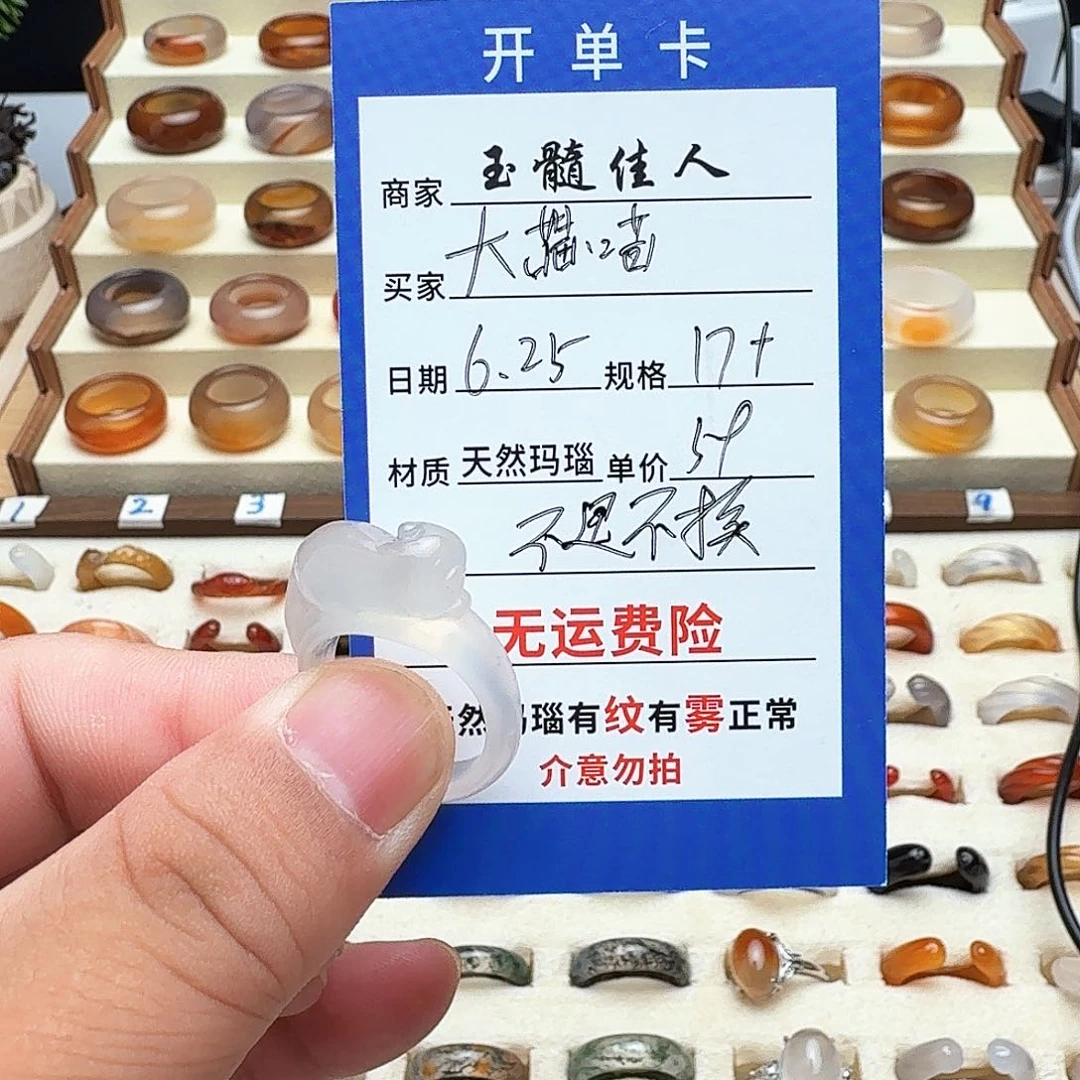 开单卡
商家 玉髓佳人
买家 大
日期 6.25 规格 17+
材质 天然玛瑙 单价 59
不退不换
无运费险
天然玛瑙有纹有雾正常
介意勿拍
1 2 3 9